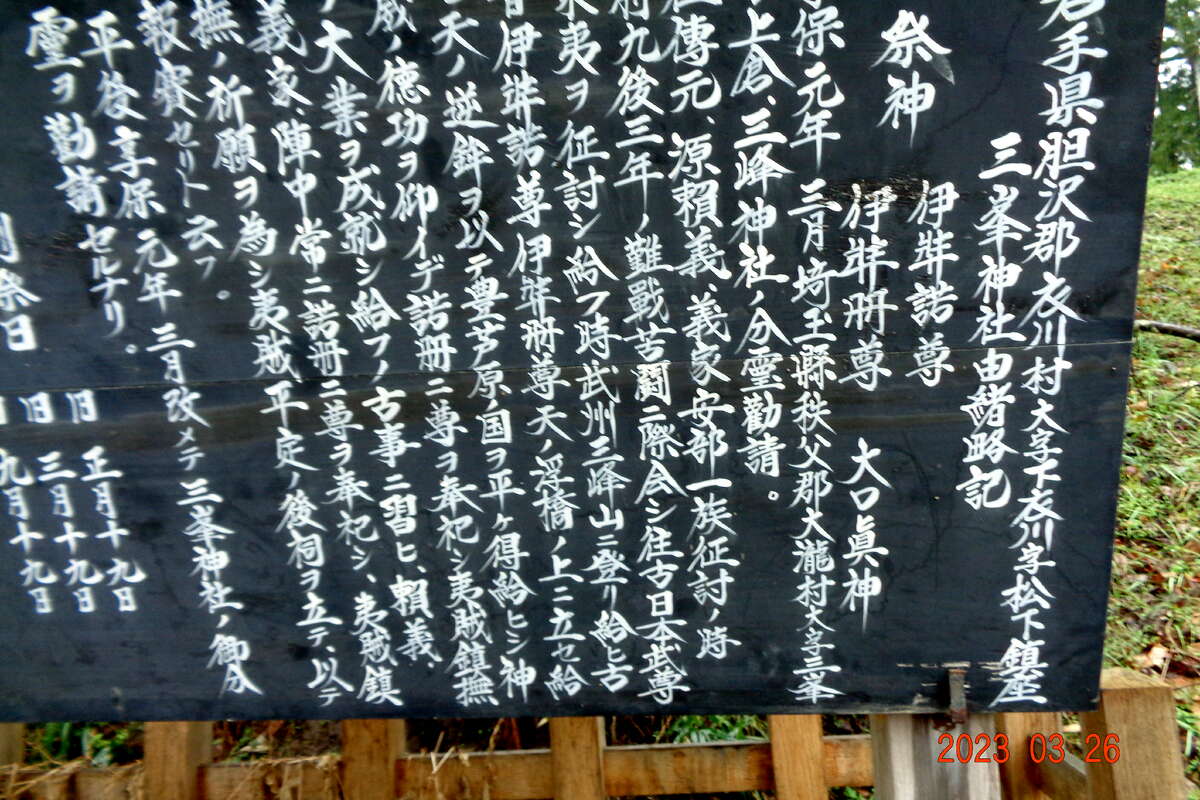 岩手県胆沢郡衣川村大字下衣川字松下鎮座
三峯神社由緒略記
祭神
伊弉諾尊
伊弉册尊
大口眞神
保元年二月埼玉縣秩父郡大瀧村大字三峯
上倉、三峰神社ノ分霊勧請。
傳元、源頼義、義家安部一族征討ノ時
村九後三年ノ難戦苦闘ニ際会シ往古日本武尊
東夷ヲ征討シ給フ時武州三峰山ニ登リ給ヒ古
伊弉諾尊伊弉册尊天ノ浮橋ノ上ニ立セ給
天ノ逆鉾ヲ以テ豊芦原ノ国ヲ平ケ得給ヒシ神
威ノ徳功ヲ仰イデ諾册二尊ヲ奉祀シ夷賊鎮撫
大業ヲ成就シ給フノ古事ニ習ヒ、頼義、
義家、陣中常ニ諾册二尊ヲ奉祀シ、夷賊鎮
撫ノ祈願ヲ為シ夷賊平定ノ後祠ヲ立テ、以テ
報賽セリト云フ。
平後享保元年三月改メテ三峯神社ノ御分
霊ヲ勧請セルナリ。
祭日
旧正月十九日
旧三月十九日
九月十九日
2023 03 26